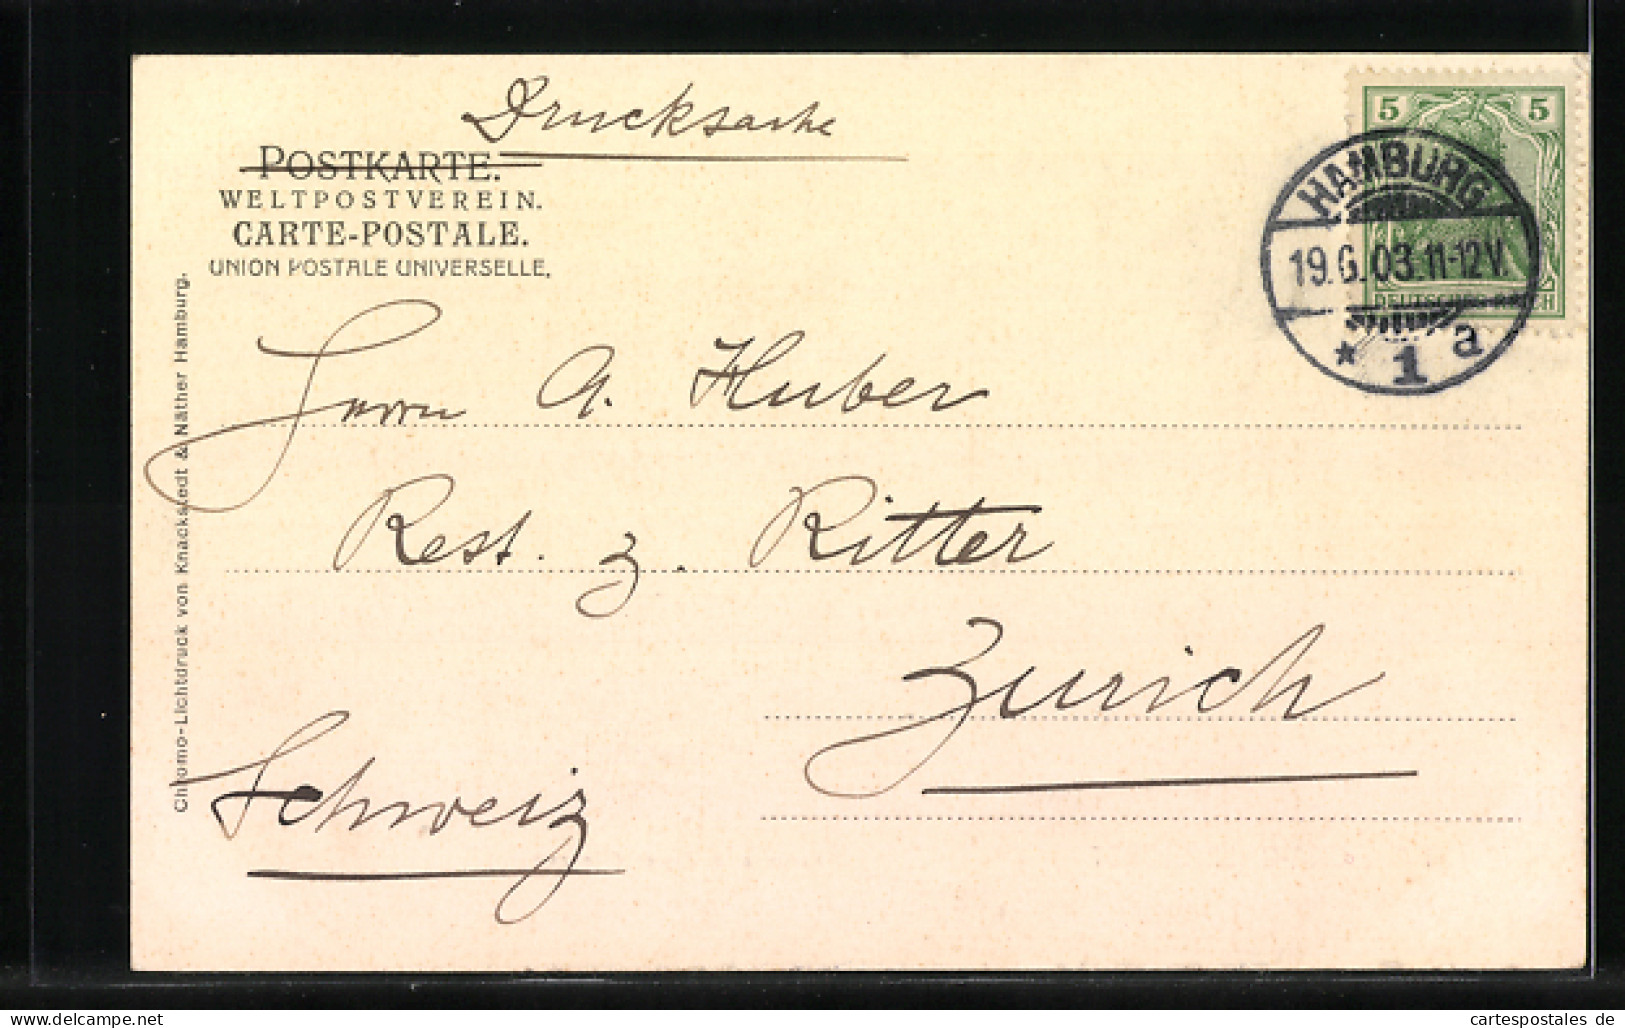 Drucksache
POSTKARTE.
WELTPOSTVEREIN.
CARTE-POSTALE.
UNION POSTALE UNIVERSELLE.
5 5
DEUTSCHES REICH
HAMBURG
19.6.03.11-12V.
* 1 a
Herrn A. Huber
Rest. z. Ritter
Zurich
Schweiz
Chromo-Lichtdruck von Knackstedt & Näther Hamburg.
www.delcampe.net
cartespostales de